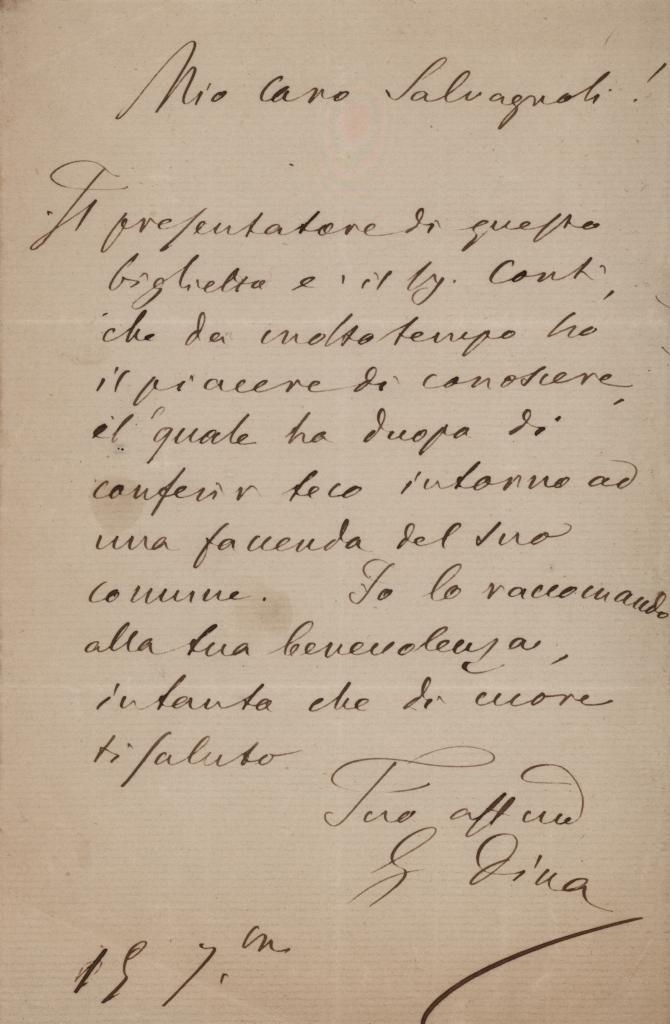 Mio caro Salvagnoli!
Il presentatore di questo
biglietto e' il Sg. Conti,
che da molto tempo ho
il piacere di conoscere,
il quale ha duopo di
conferir teco intorno ad
una faccenda del suo
comune. Io lo raccomando
alla tua benevolenza,
intanto che di cuore
ti saluto
Tuo affmo
G Dina
19 7.bre